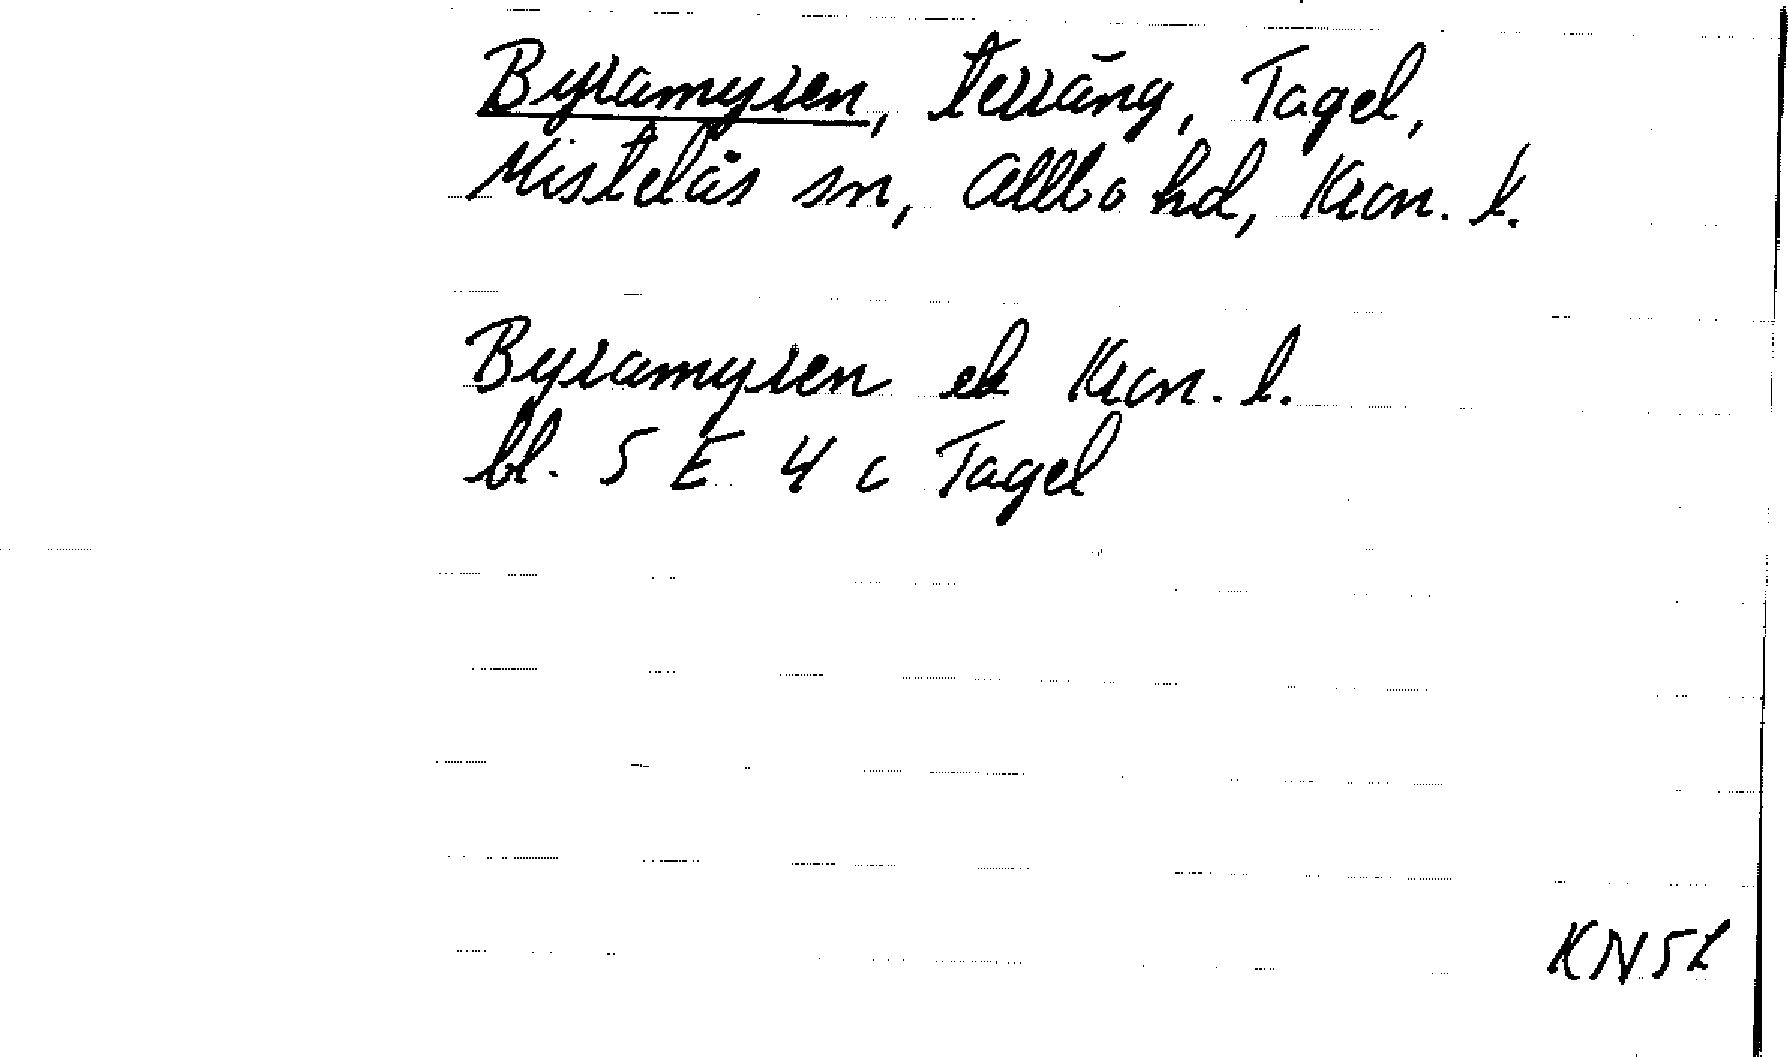 Byramyren, terräng, Tagel,
Mistelås sn, Allbo hd, Kron. l.
Byramyren ek Kron. l.
bl. 5 E 4 c Tagel